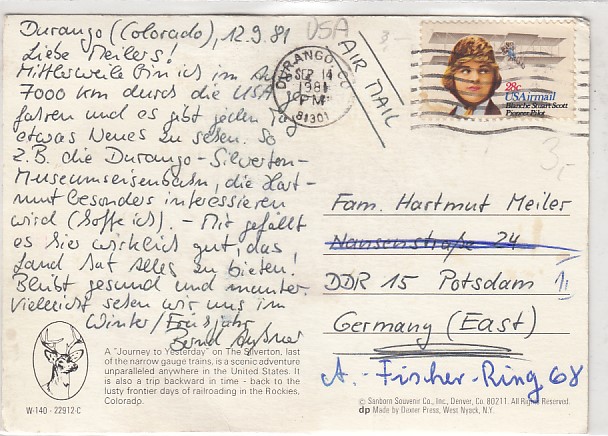 Durango (Colorado), 12.9.81
Liebe Meilers!
Mittlerweile bin ich im
7000 km durch die USA ge-
fahren und es gibt jeden Tag
etwas Neues zu sehen. So
z.B. die Durango-Silverton-
Museumseisenbahn, die Hart-
mut besonders interessieren
wird (hoffe ich). - Mir gefällt
es hier wirklich gut, das
Land hat alles zu bieten!
Bleibt gesund und munter.
Vielleicht sehen wir uns im
Winter/Frühjahr
Bernd
USA
AIR MAIL
DURANGO, CO
SEP 14
1981
PM
81301
28c
USAirmail
Blanche Stuart Scott
Pioneer Pilot
3,-
Fam. Hartmut Meiler
Nansenstraße 24
DDR 15 Potsdam
Germany (East)
A.-Fischer-Ring 68
A "Journey to Yesterday" on The Silverton, last
of the narrow gauge trains, is a scenic adventure
unparalleled anywhere in the United States. It
is also a trip backward in time - back to the
lusty frontier days of railroading in the Rockies,
Colorado.
W-140 - 22912-C
© Sanborn Souvenir Co., Inc., Denver, Co. 80211. All Rights Reserved.
dp Made by Dexter Press, West Nyack, N.Y.